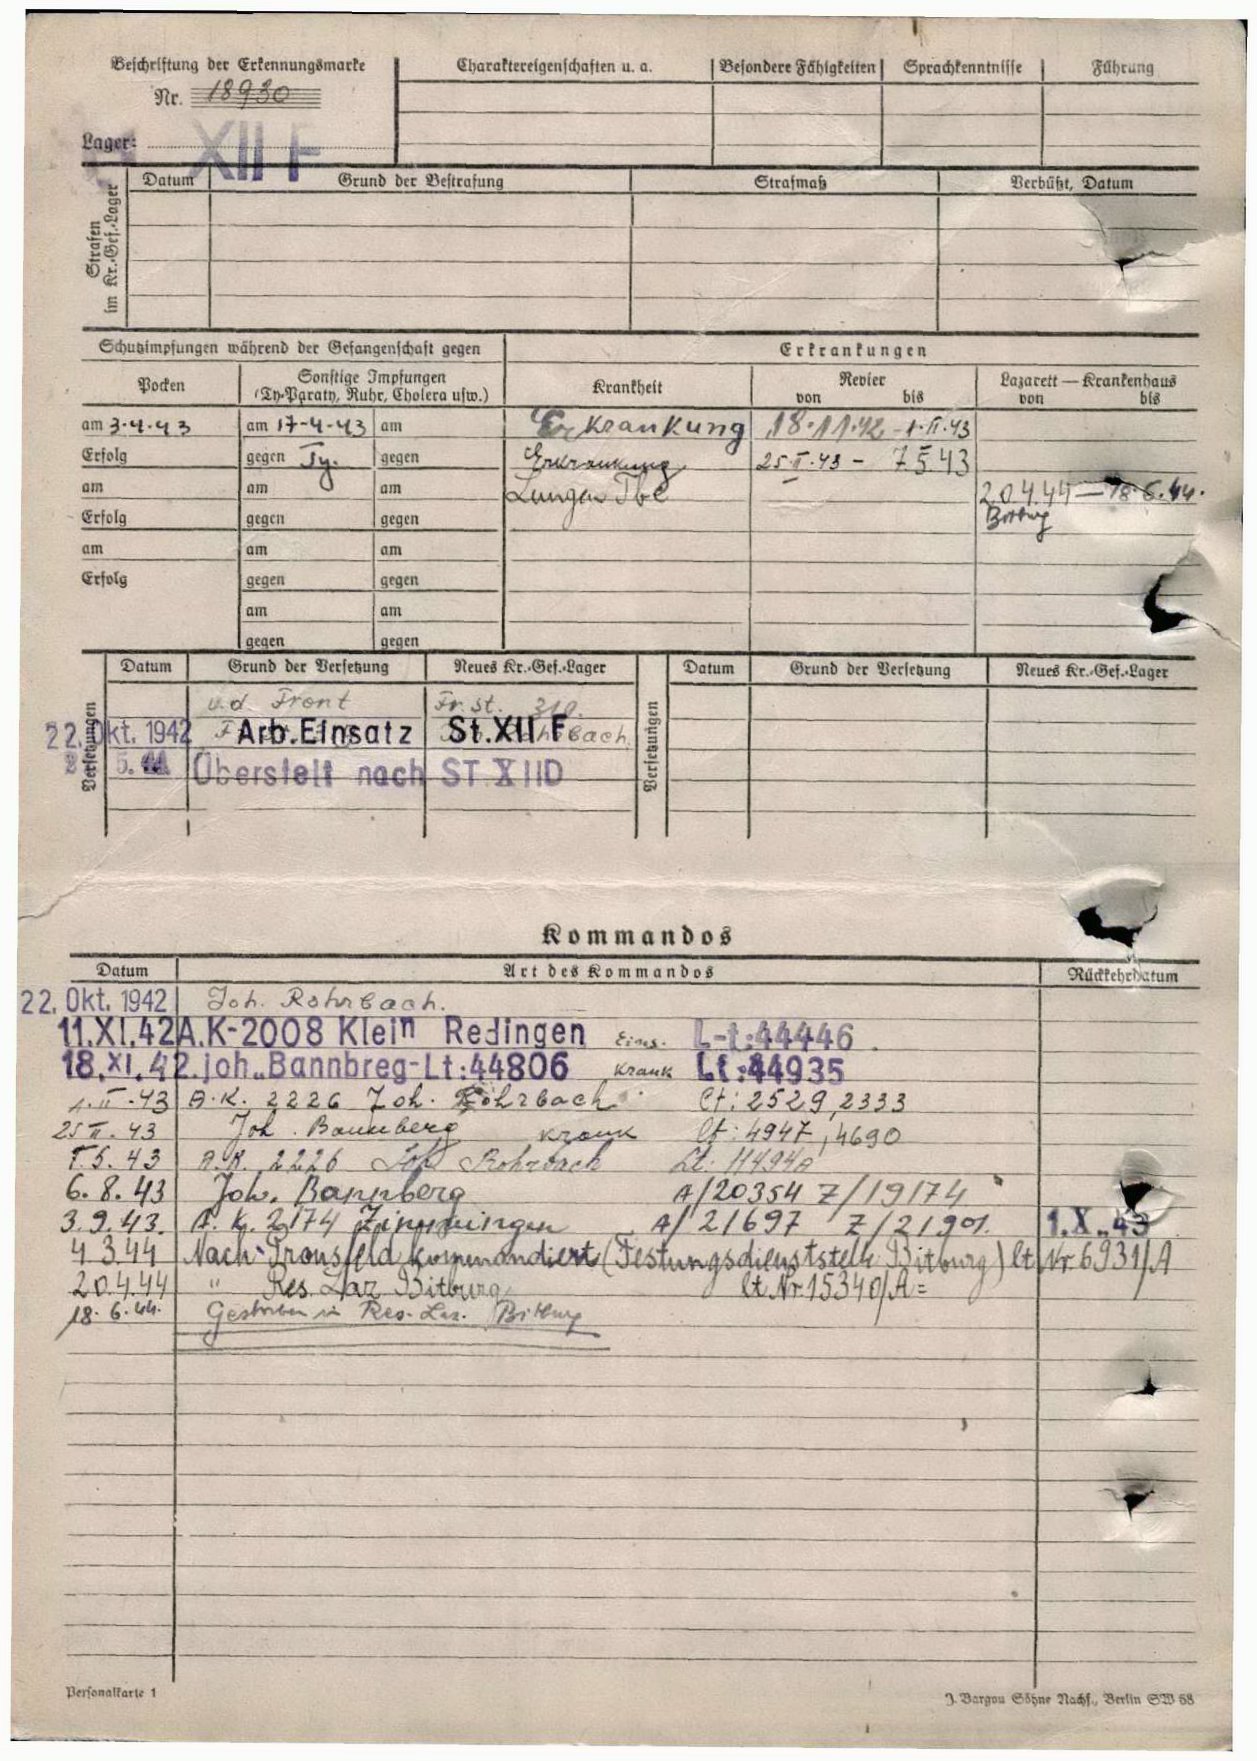 Beschriftung der Erkennungsmarke
Nr. 18930
Lager: XII F
Charaktereigenschaften u. a.
Besondere Fähigkeiten
Sprachkenntnisse
Führung
Strafen im Kr.-Gef.-Lager
Datum Grund der Bestrafung Strafmaß Verbüßt, Datum
Schutzimpfungen während der Gefangenschaft gegen Erkrankungen
Pocken Sonstige Impfungen (Ty-Paraty, Ruhr, Cholera usw.) Krankheit Revier von bis Lazarett — Krankenhaus von bis
am 3.4.43 am 17-4-43 am Erkrankung 18.11.42 - 1.II.43
Erfolg gegen Ty. gegen Erkrankung 25.II.43 - 7.5.43
am am am Lungen Tbc 20.4.44 — 18.6.44.
Erfolg gegen gegen Bitburg
am am am
Erfolg gegen gegen
am am
gegen gegen
Versetzungen
Datum Grund der Versetzung Neues Kr.-Gef.-Lager
v.d. Front Fr. St. 310.
22. Okt. 1942 Arb.Einsatz St.XII F
5. 44 Überstellt nach ST.XIID
Versetzungen
Datum Grund der Versetzung Neues Kr.-Gef.-Lager
Kommandos
Datum Art des Kommandos Rückkehrdatum
22. Okt. 1942 Joh. Rohrbach.
11.XI.42 A.K-2008 Klein Redingen Eins. L-t:44446
18.XI.42. Joh. Bannbreg-Lt:44806 krank Lt:44935
1.II-43 A.K. 2226 Joh. Rohrbach Lt: 2529, 2333
25 II. 43 Joh. Bannberg krank lt: 4947, 4690
7.5.43 A.K. 2226 Joh. Rohrbach Lt. 11494a
6.8.43 Joh. Bannberg A/20354 Z/19174
3.9.43. A.K. 2174 A/21697 Z/21901. 1.X.43
4.3.44 Nach Pronsfeld kommandiert (Festungsdienststelle Bitburg) lt Nr. 6931/A
20.4.44 " Res. Laz Bitburg lt Nr. 15340/A=
18.6.44. Gestorben in Res. Laz. Bitburg
Personalkarte 1
J. Bargou Söhne Nachf., Berlin SW 68